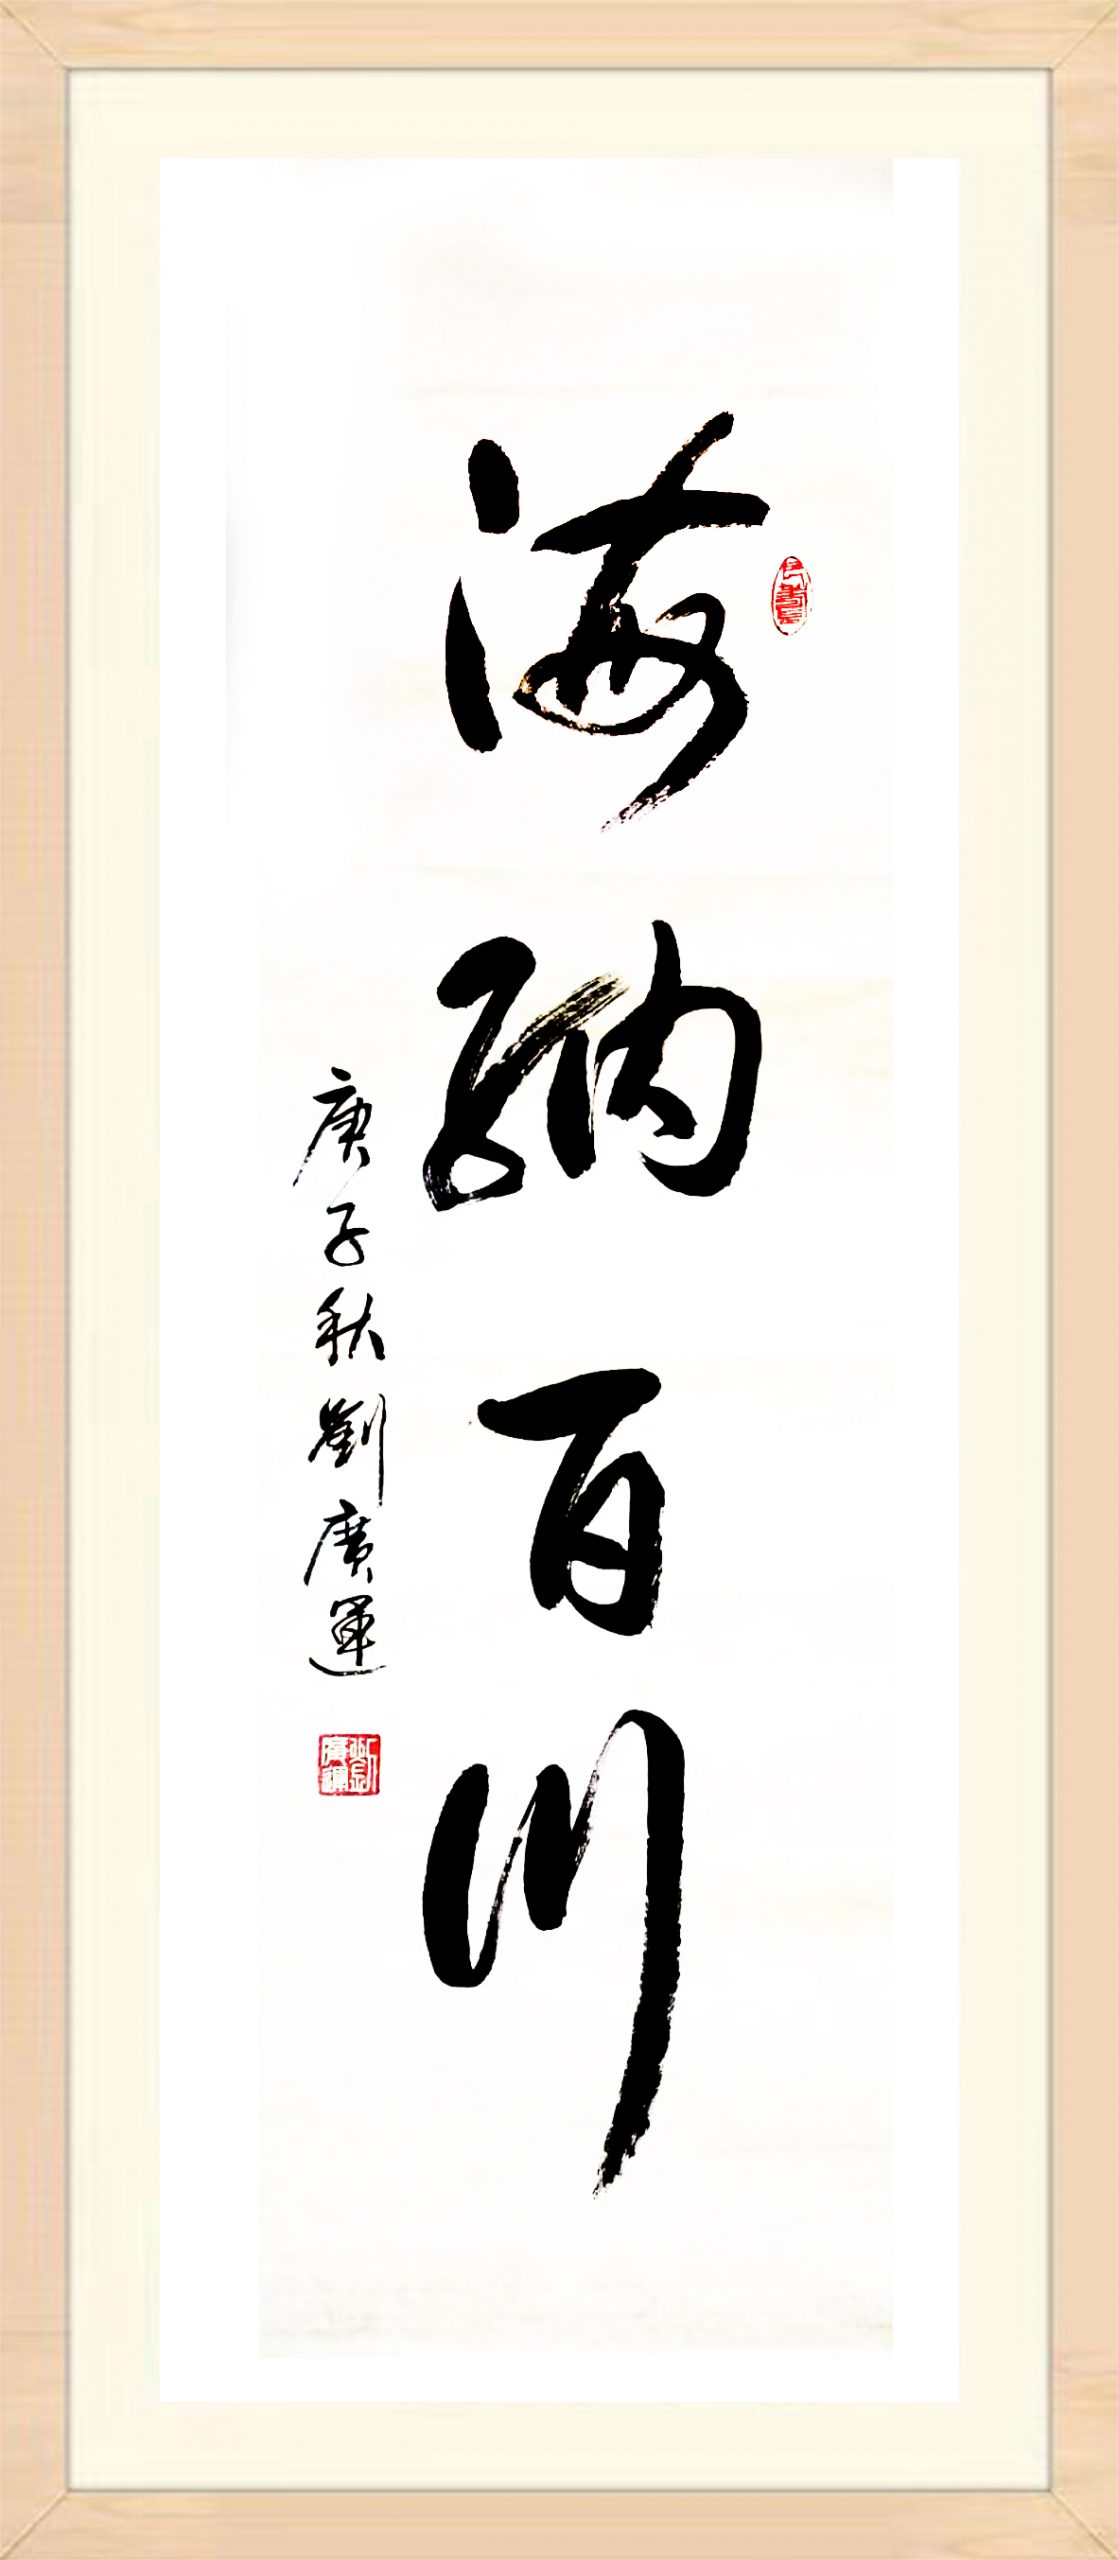 海納百川
庚子秋劉廣運
劉廣運